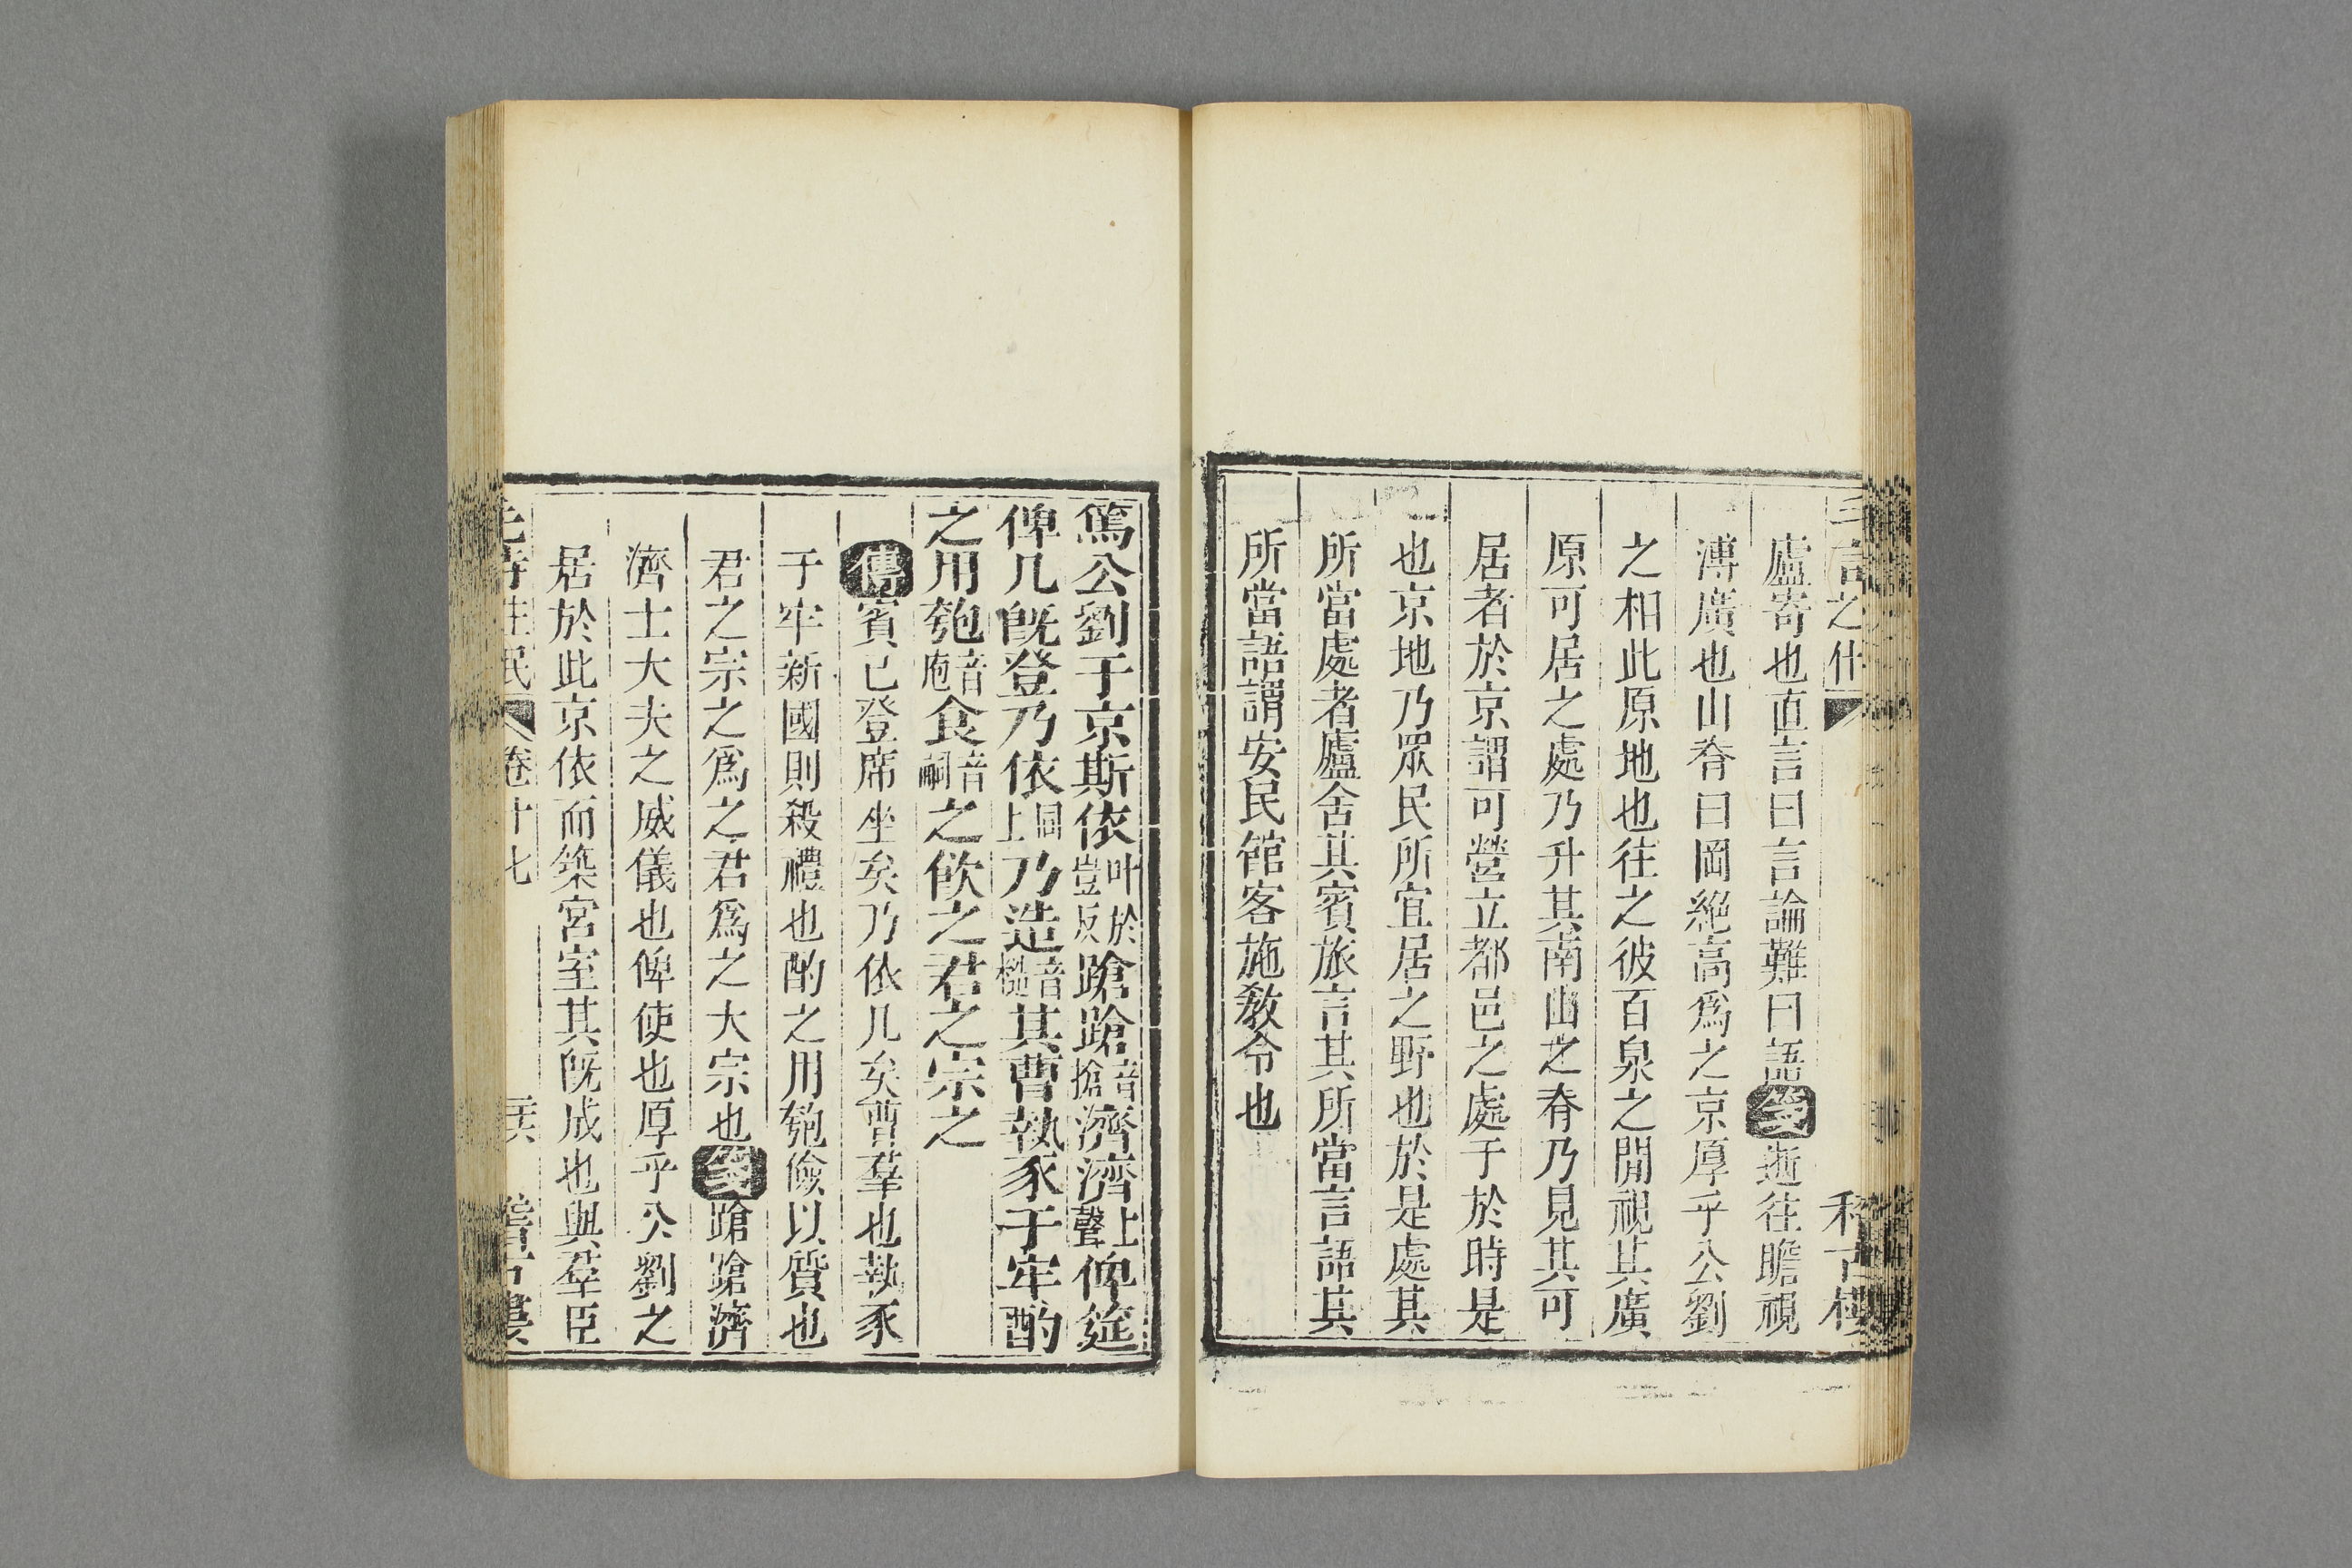 廬寄也直言曰言論難曰語箋逝往瞻視
溥廣也山脊曰岡絕高爲之京厚乎公劉
之相此原地也往之彼百泉之閒視其廣
原可居之處乃升其南山之脊乃見其可
居者於京謂可營立都邑之處于於時是
也京地乃眾民所宜居之野也於是處其
所當處者廬舍其賓旅言其所當言語其
所當語謂安民館客施敎令也
篤公劉于京斯依叶於豈反蹌蹌音搶濟濟上聲俾筵
俾几旣登乃依同上乃造音慥其曹執豕于牢酌
之用匏音庖食音嗣之飮之君之宗之
傳賓已登席坐矣乃依几矣曹羣也執豕
于牢新國則殺禮也酌之用匏儉以質也
君之宗之爲之君爲之大宗也箋蹌蹌濟
濟士大夫之威儀也俾使也厚乎公劉之
居於此京依而築宮室其旣成也與羣臣
卷十七